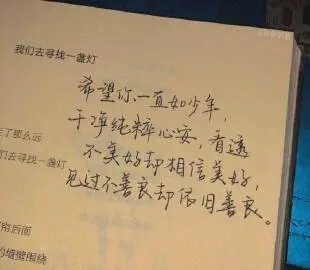 我们去寻找一盏灯
希望你一直如少年，
干净纯粹心安，看透
不美好却相信美好，
见过不善良却依旧善良。
走了那么远
们去寻找一盏灯
帘后面
的墙壁围绕